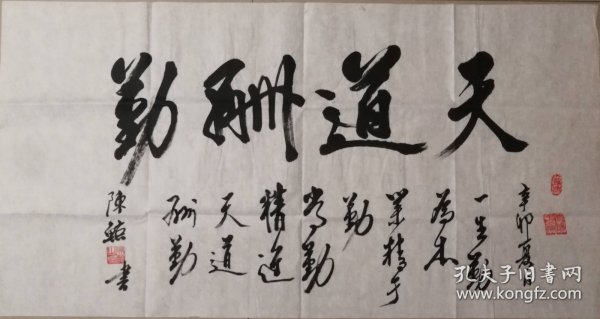 天道酬勤
辛卯夏日
一生勤
为本
业精于
勤
常勤
精进
天道
酬勤
陈 书
孔夫子旧书网
www.kongfz.com